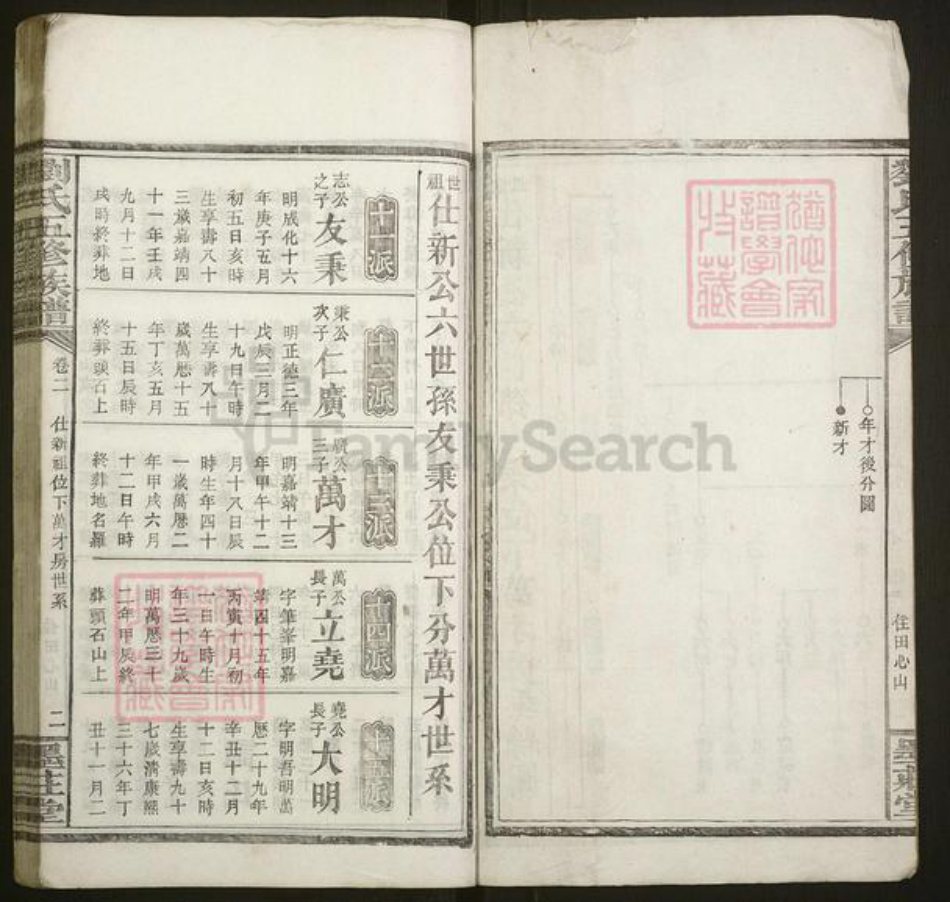 年才後分圖
新才
住田心山
墨莊堂
世祖仕新公六世孫友秉公位下分萬才世系
十一派
志公之子友秉
明成化十六
年庚子五月
初五日亥時
生享壽八十
三歲嘉靖四
十一年壬戌
九月十二日
戌時終葬地
十二派
秉公次子仁廣
明正德三年
戊辰三月二
十九日午時
生享壽八十
歲萬曆十五
年丁亥五月
十五日辰時
終葬頭石上
十三派
廣公三子萬才
明嘉靖十三
年甲午十二
月十八日辰
時生年四十
一歲萬曆二
年甲戌六月
十二日午時
終葬地名羅
十四派
萬公長子立堯
字筆峯明嘉
靖四十五年
丙寅十月初
一日午時生
年三十九歲
明萬曆三十
二年甲辰終
葬頭石山上
十五派
堯公長子大明
字明吾明萬
曆二十九年
辛丑十二月
十二日亥時
生享壽九十
七歲淸康熙
三十六年丁
丑十一月二
劉氏五修族譜
卷二
仕新祖位下萬才房世系
二
墨莊堂
FamilySearch